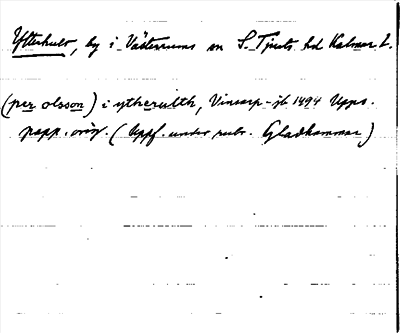 Ytterhult, by i Västerums sn S. Tjusts hd Kalmar l.
(per olsson) i ytherulth, Vinsarp-jb 1494 Upps.
papp. orig. (Uppf. under rubr. Gladhammar)